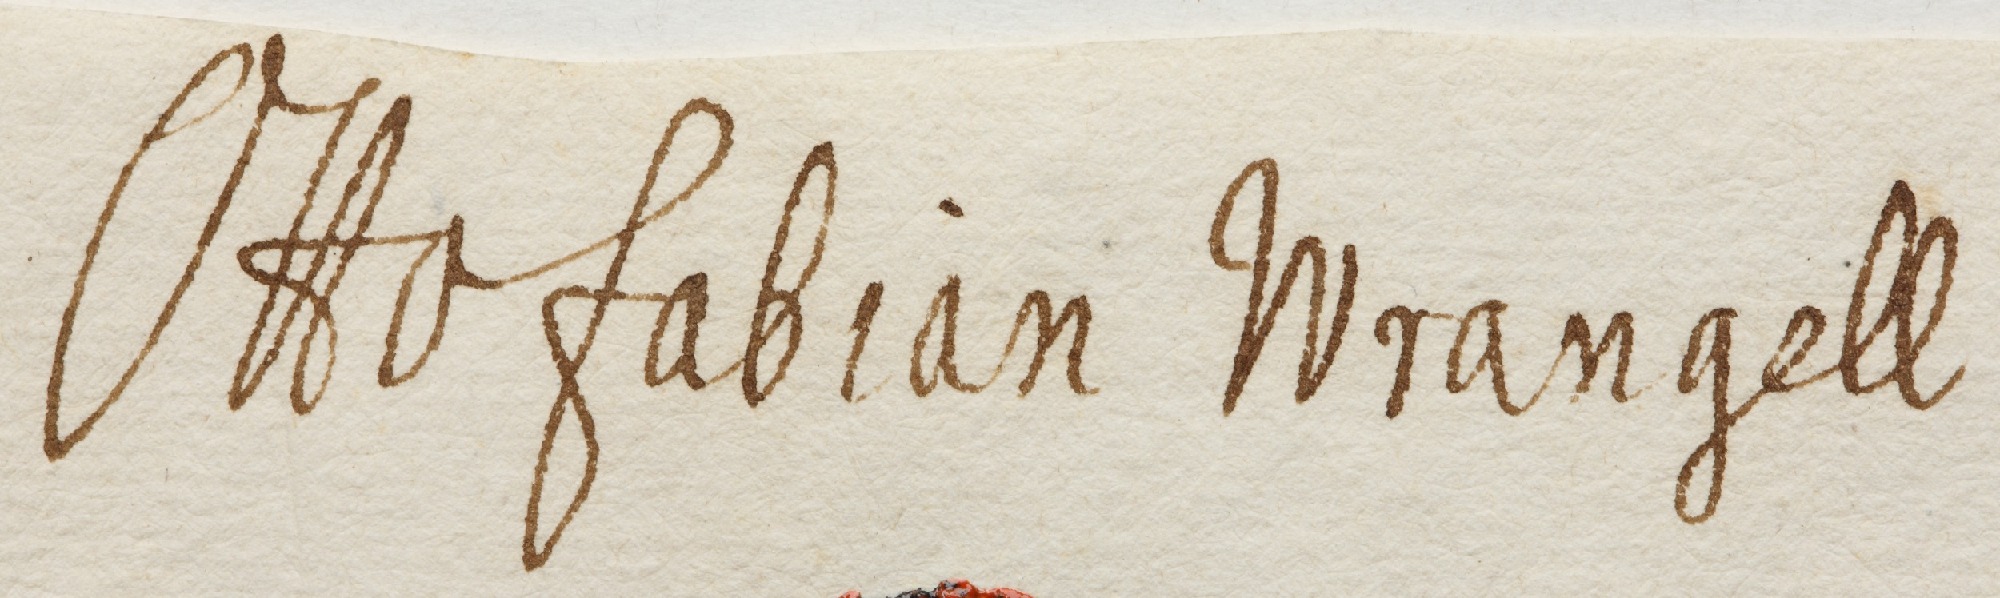 Otto fabian Wrangell